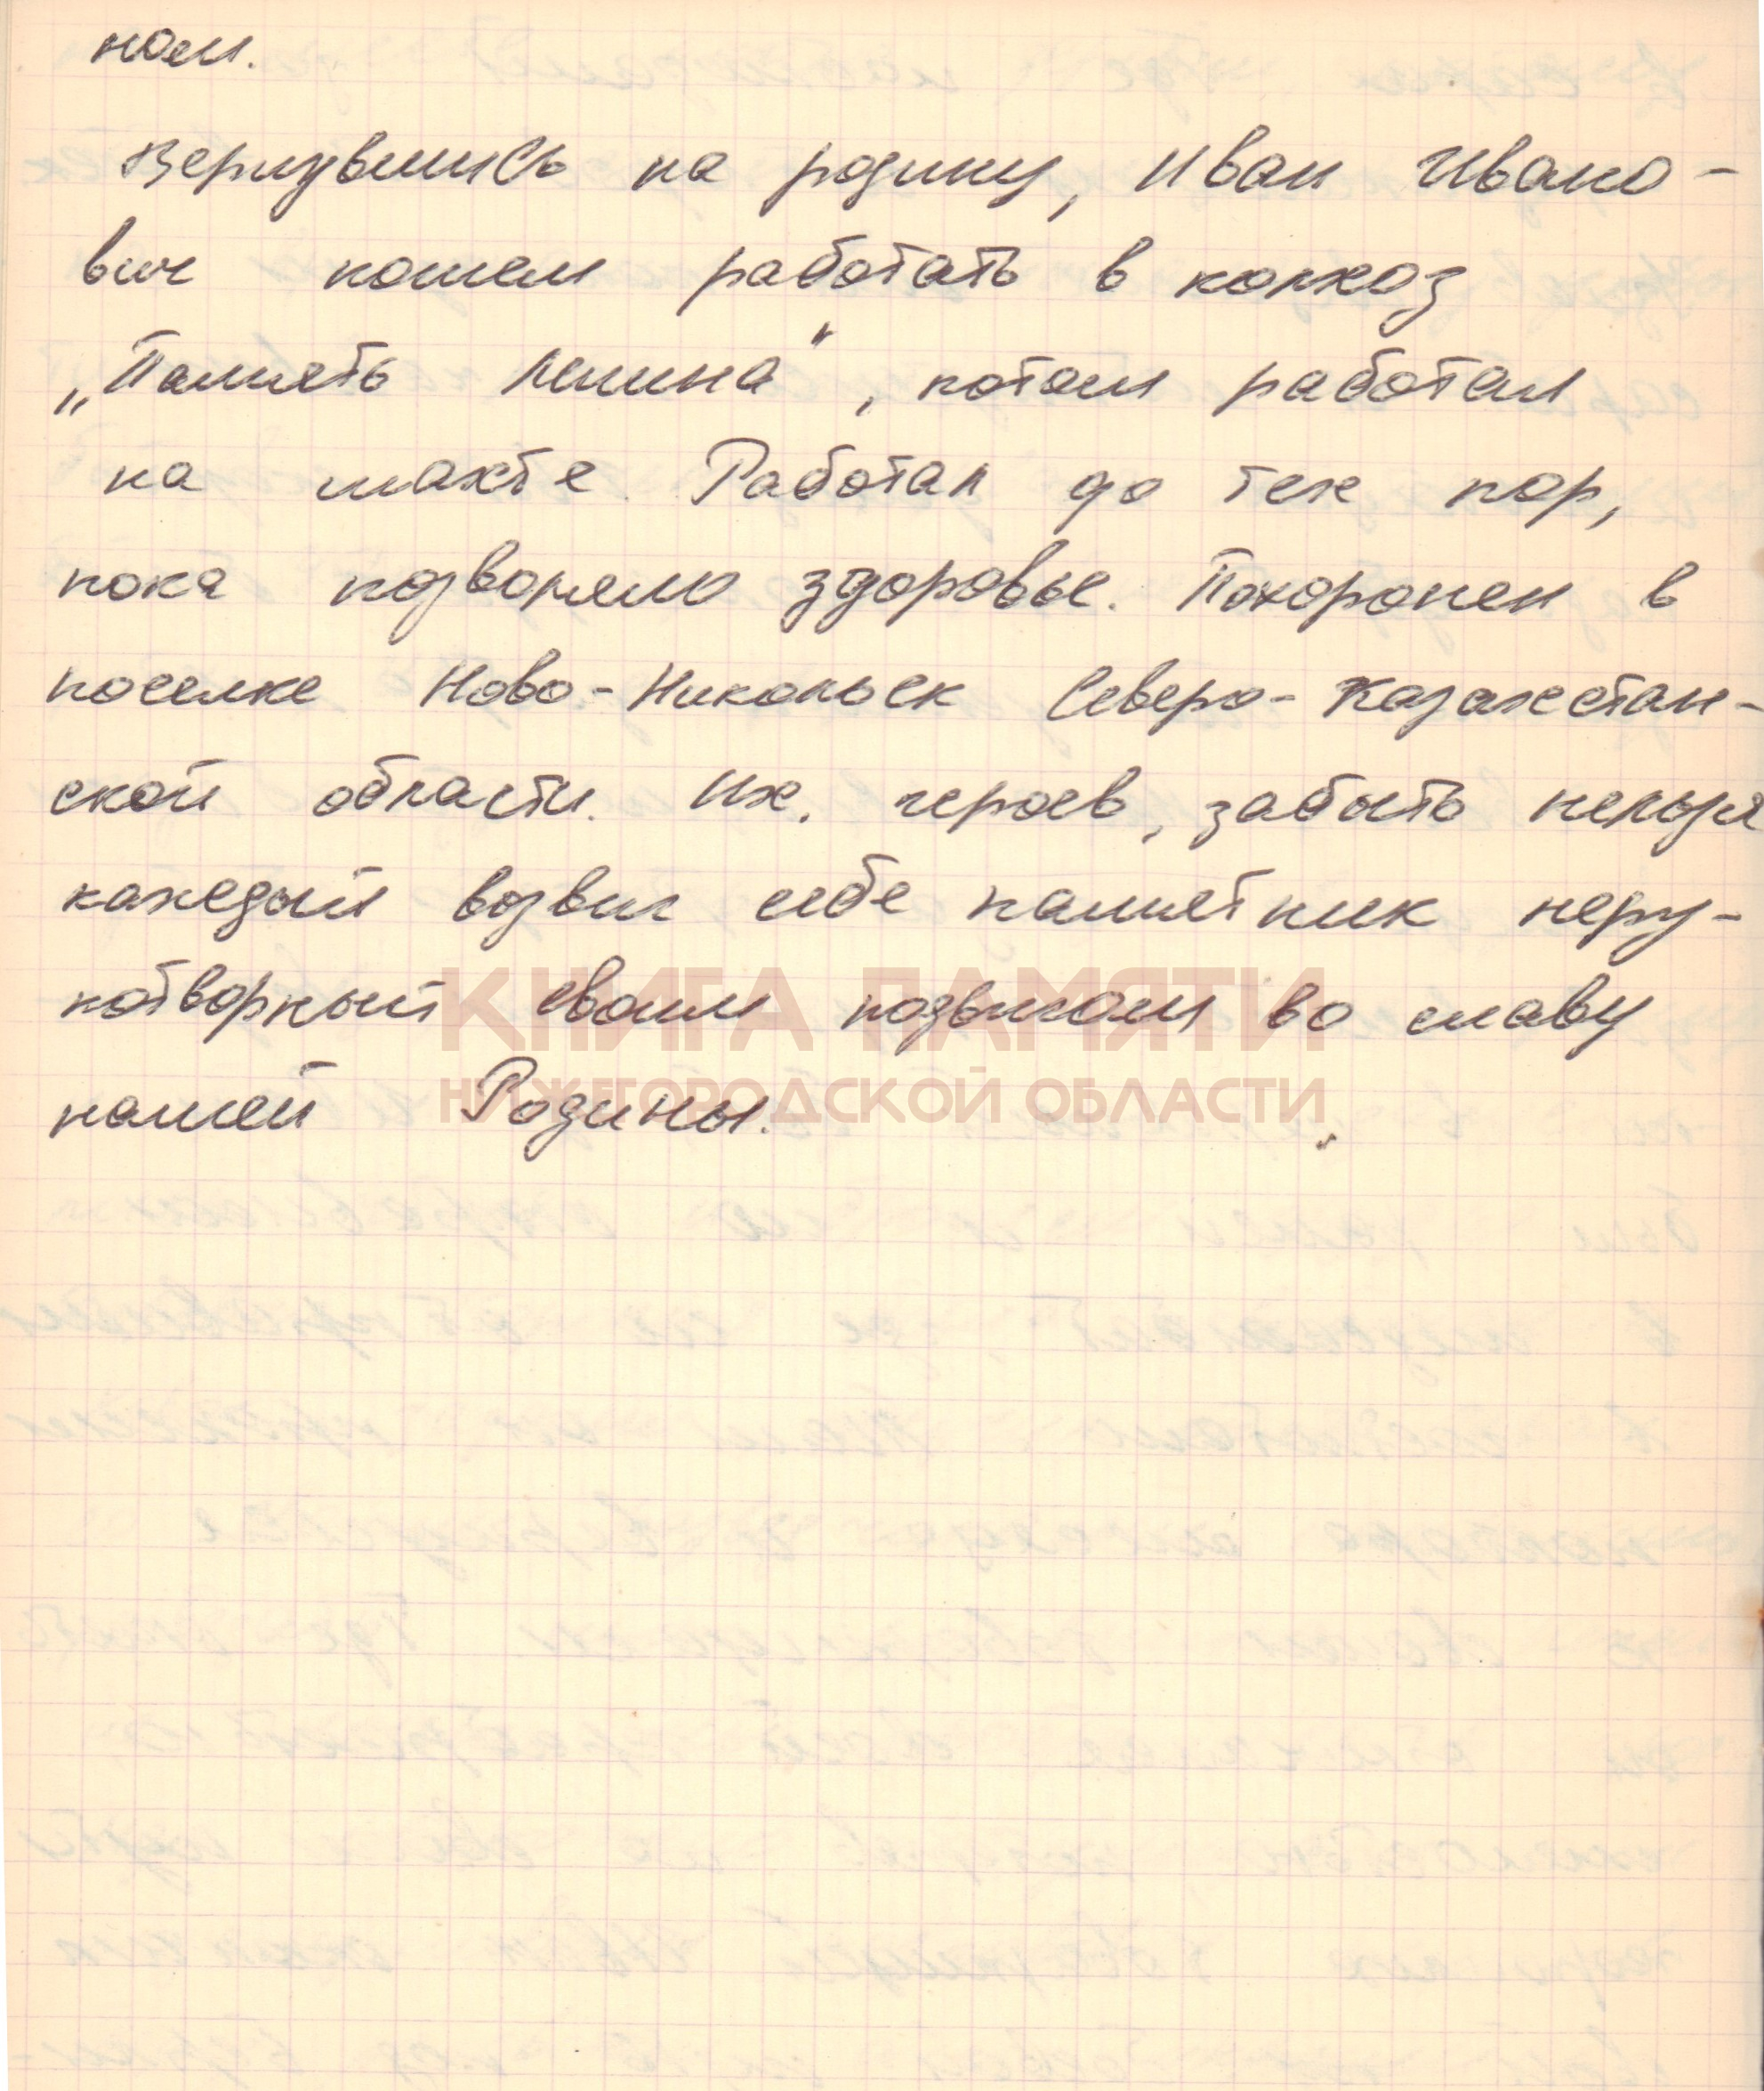 ном.
Вернувшись на родину, Иван Ивано-
вич пошел работать в колхоз
„Память Ленина", потом работал
на шахте. Работал до тех пор,
пока позволяло здоровье. Похоронен в
поселке Ново-Никольск Северо-Казахстан-
ской области. Их, героев, забыть нельзя
каждый возвиг себе памятник неру-
котворный своим подвигом во славу
КНИГА ПАМЯТИ
нашей Родины.
НИЖЕГОРОДСКОЙ ОБЛАСТИ